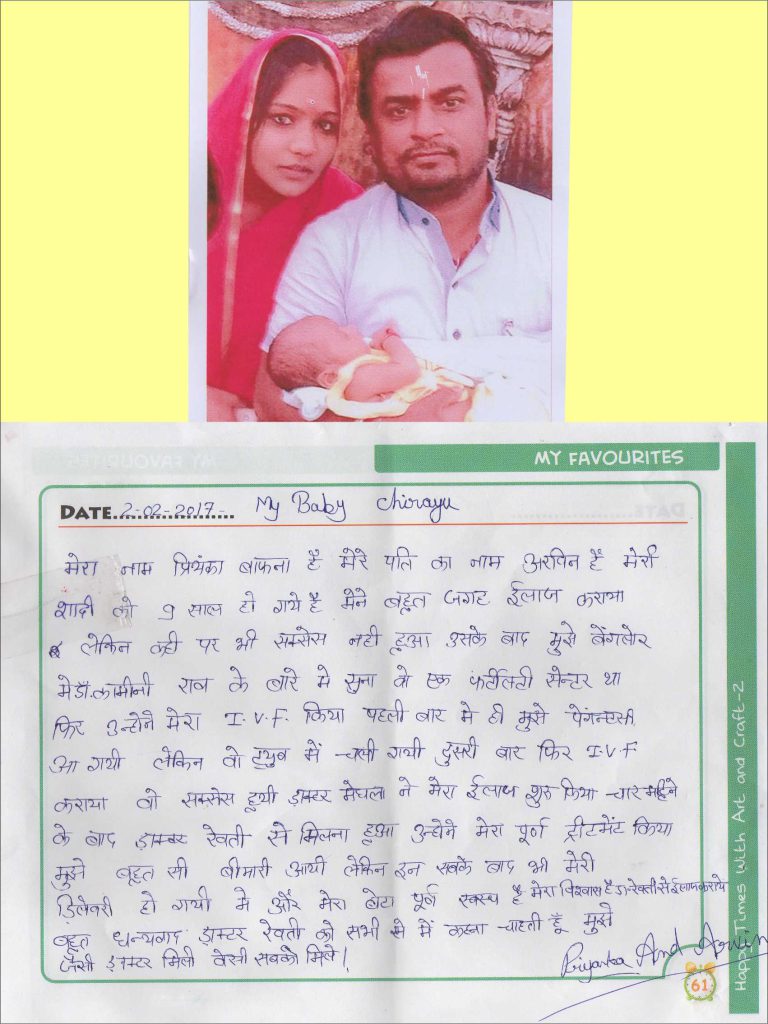 MY FAVOURITES
DATE 2-02-2017 My Baby Chirayu
मेरा नाम प्रियंका बाफना है मेरे पति का नाम अरविन है मेरी
शादी को 9 साल हो गये है मैने बहूत जगह ईलाज कराया
लेकिन कही पर भी सक्सेस नही हूआ उसके बाद मुझे बेंगलोर
मे डॉ. कामीनी राव के बारे मे सुना वो एक फर्टीलटी सेन्टर था
फिर उन्होने मेरा I.V.F. किया पहली बार मे ही मुझे
आ गयी लेकिन वो ट्युब में चली गयी दुसरी बार फिर I.V.F
कराया वो सक्सेस हूयी डाक्टर मेघला ने मेरा ईलाज शुरु किया चार महिने
के बाद डाक्टर रेवती से मिलना हूआ उन्होने मेरा पूर्ण ट्रीटमेंट किया
मुझे बहूत सी बीमारी आयी लेकिन इन सबके बाद भी मेरी
डिलेवरी हो गयी मे और मेरा बेटा पूर्ण स्वस्थ है मेरा विश्वास है डा. रेवती से ईलाज कराये
बहूत धन्यवाद डाक्टर रेवती को सभी से में कहना चाहती हूँ मुझे
जैसी डाक्टर मिली वैसी सबको मिले!
Priyanka And Arvin
61
Happy Times With Art and Craft-2